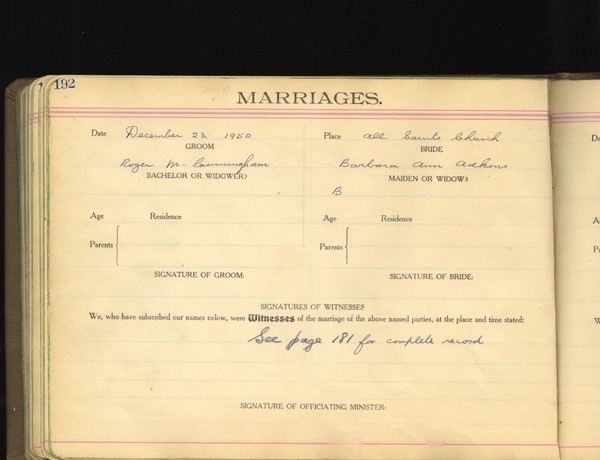 192
MARRIAGES.
Date December 23 1950 Place All Saints Church
GROOM BRIDE
Roger M. Cunningham Barbara Ann Adkins
BACHELOR OR WIDOWER? MAIDEN OR WIDOW?
B
Age Residence Age Residence
Parents Parents
SIGNATURE OF GROOM: SIGNATURE OF BRIDE:
SIGNATURES OF WITNESSES
We, who have subscribed our names below, were Witnesses of the marriage of the above named parties, at the place and time stated:
See page 181 for complete record
SIGNATURE OF OFFICIATING MINISTER: